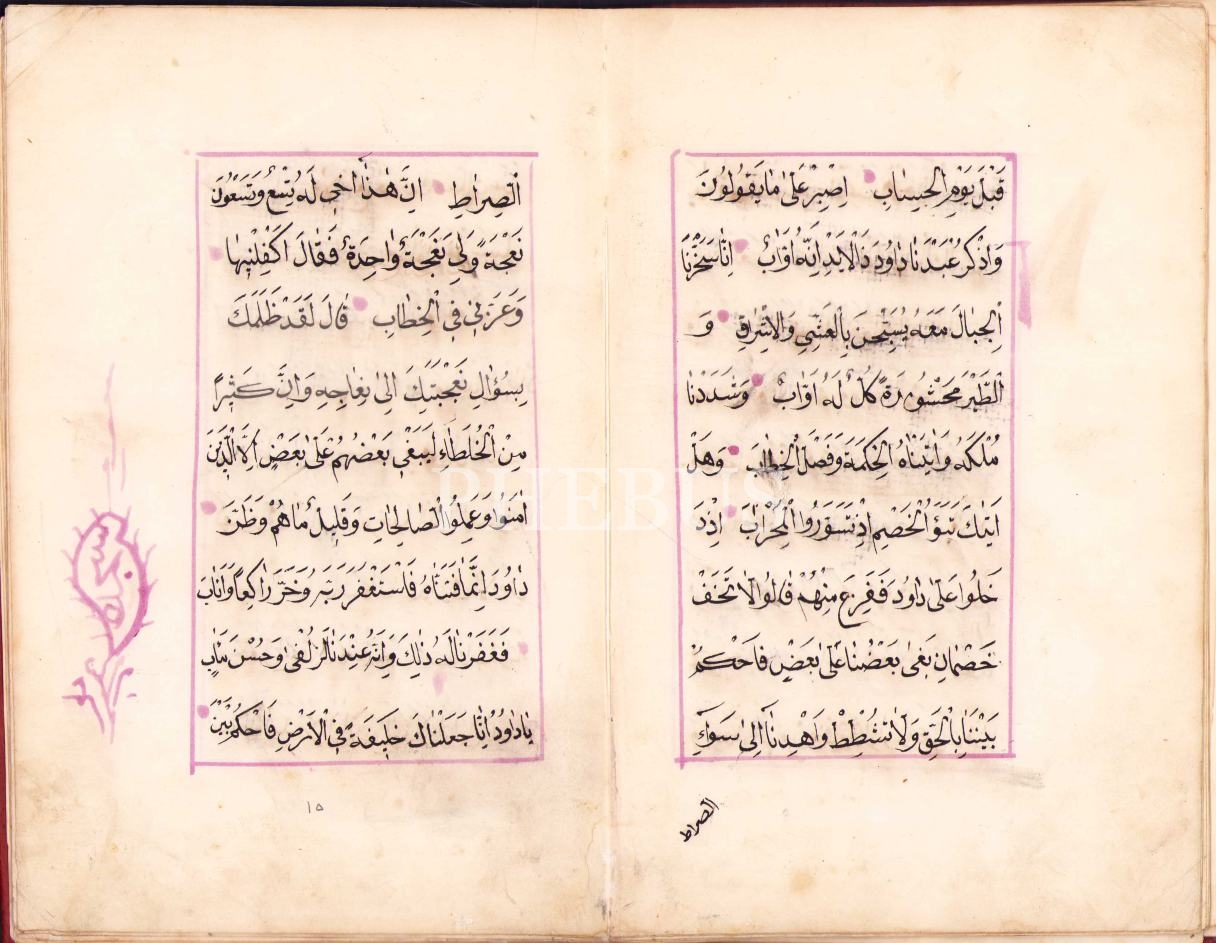 قَبْلَ يَوْمِ الْحِسَابِ اِصْبِرْ عَلٰى مَا يَقُولُونَ
وَاذْكُرْ عَبْدَنَا دَاوُدَ ذَا الْاَيْدِ اِنَّهُ اَوَّابٌ اِنَّا سَخَّرْنَا
الْجِبَالَ مَعَهُ يُسَبِّحْنَ بِالْعَشِيِّ وَالْاِشْرَاقِ وَ
الطَّيْرَ مَحْشُورَةً كُلٌّ لَهُ اَوَّابٌ وَشَدَدْنَا
مُلْكَهُ وَاٰتَيْنَاهُ الْحِكْمَةَ وَفَصْلَ الْخِطَابِ وَهَلْ
اَتٰيكَ نَبَؤُا الْخَصْمِ اِذْ تَسَوَّرُوا الْمِحْرَابَ اِذْ دَ
خَلُوا عَلٰى دَاوُدَ فَفَزِعَ مِنْهُمْ قَالُوا لَا تَخَفْ
خَصْمَانِ بَغٰى بَعْضُنَا عَلٰى بَعْضٍ فَاحْكُمْ
بَيْنَنَا بِالْحَقِّ وَلَا تُشْطِطْ وَاهْدِنَا اِلٰى سَوَاءِ
الصراط
الصِّرَاطِ اِنَّ هٰذَا اَخِي لَهُ تِسْعٌ وَتِسْعُونَ
نَعْجَةً وَلِيَ نَعْجَةٌ وَاحِدَةٌ فَقَالَ اَكْفِلْنِيهَا
وَعَزَّنِي فِي الْخِطَابِ قَالَ لَقَدْ ظَلَمَكَ
بِسُؤَالِ نَعْجَتِكَ اِلٰى نِعَاجِهِ وَاِنَّ كَثِيرًا
مِنَ الْخُلَطَاءِ لَيَبْغِي بَعْضُهُمْ عَلٰى بَعْضٍ اِلَّا الَّذِينَ
اٰمَنُوا وَعَمِلُوا الصَّالِحَاتِ وَقَلِيلٌ مَا هُمْ وَظَنَّ
دَاوُدُ اَنَّمَا فَتَنَّاهُ فَاسْتَغْفَرَ رَبَّهُ وَخَرَّ رَاكِعًا وَاَنَابَ
فَغَفَرْنَا لَهُ ذٰلِكَ وَاِنَّ لَهُ عِنْدَنَا لَزُلْفٰى وَحُسْنَ مَاٰبٍ
يَا دَاوُدُ اِنَّا جَعَلْنَاكَ خَلِيفَةً فِي الْاَرْضِ فَاحْكُمْ بَيْنَ
سجده
١٥
PHEBUS